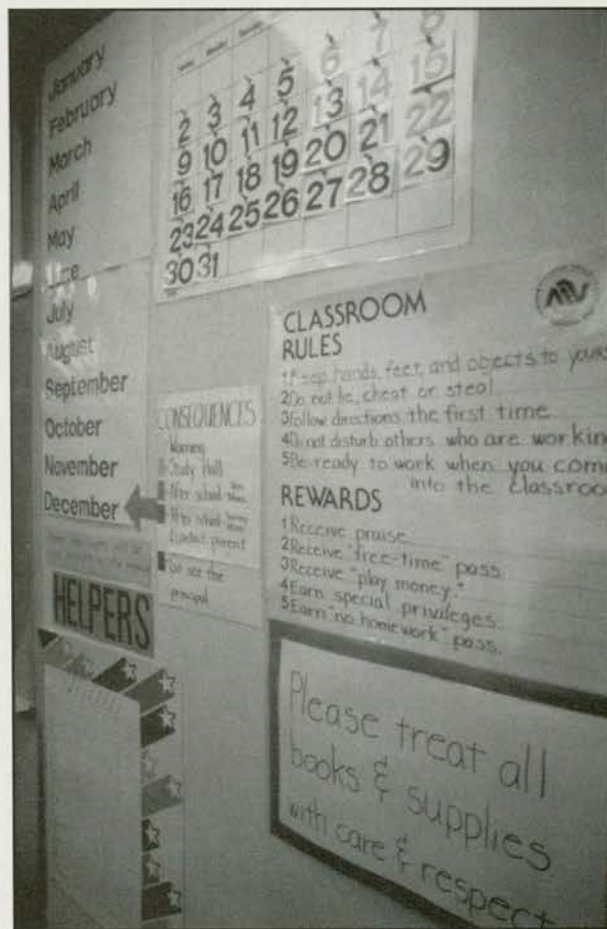 January
February
March
April
May
June
July
August
September
October
November
December
6 7 8
2 3 4 5 13 14 15
9 10 11 12 20 21 22
16 17 18 19 27 28 29
23 24 25 26
30 31
CLASSROOM
RULES
1 Keep hands, feet, and objects to yours
2 Do not lie, cheat or steal.
3 Follow directions the first time.
4 Do not disturb others who are workin
5 Be ready to work when you com
into the classroo
REWARDS
1 Receive praise.
2 Receive "free-time" pass.
3 Receive "play money."
4 Earn special privileges.
5 Earn "no homework" pass.
CONSEQUENCES
Warning
Study Hall
After school
After school
Contact parent
Go see the
principal
HELPERS
Please treat all
books & supplies
with care & respect